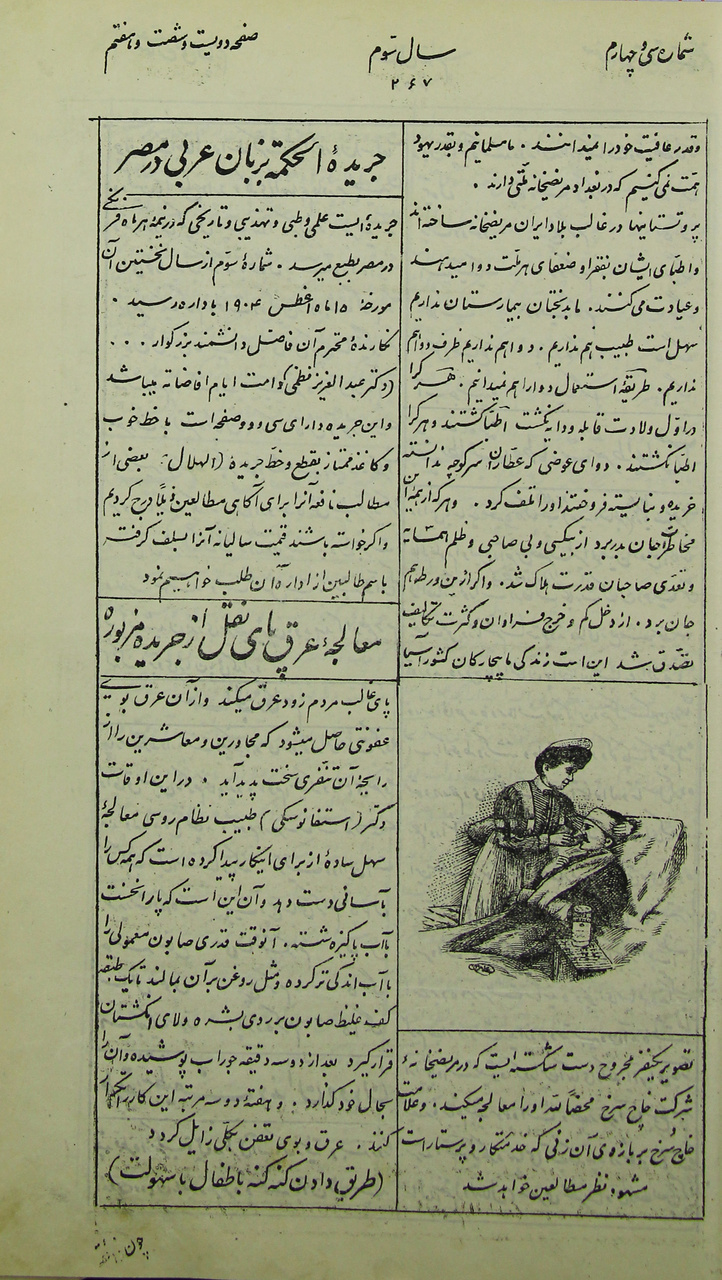 شماره سی و چهارم
سال سوم
صفحه دویست و شصت و هفتم
۲۶۷
وقدر عافیت خود را نمیدانند . ما مسلمانیم و بقدر یهود
همت نمی‌کنیم که در بغداد مریضخانه ملتی دارند .
پروتستانیها در غالب بلاد ایران مریضخانه ساخته‌اند
و اطبای ایشان بفقرا و ضعفای هر ملت دوا میدهند
و عیادت می‌کنند . ما بدبختان بیمارستان نداریم
سهل است طبیب هم نداریم . دوا هم نداریم ظرف دوا هم
نداریم . طریقهٔ استعمال دوا را هم نمیدانیم . هر کرا
در اول ولادت قابله و دایه نکشت اطبا کشتند و هر کرا
اطبا نکشتند . دوای عوضی که عطاران سر کوچه ندانسته
خریده و نبایسته فروختند او را تلف کرد . و هر که از همهٔ این
مخاطرات جان بدر برد از بیکسی و بی صاحبی و ظلم همسایه
و تعدی صاحبان قدرت هلاک شد . و اگر ازین ورطه هم
جان برد . از دخل کم و خرج فراوان و کثرت تکالیف
تصدق شد این است زندگی ما بیچارکان کشور آسیا
تصویر یکنفر مجروح دست شکسته ایست که در مریضخانهٔ
شرکت خاج سرخ محضاً لله او را معالجه میکنند . وعلامت
خاج سرخ بر بازوی آن زنی که خدمتکار و پرستار است
مشهود نظر مطالعین خواهد شد
جریدهٔ الحکمة بزبان عربی در مصر
جریدهٔ ایست علمی و طبی و تهذیبی و تاریخی که در نیمهٔ هر ماه فرنگی
در مصر بطبع میرسد . شمارهٔ سوم از سال نخستین آن
مورخهٔ ۱۵ ماه اغطس ۱۹۰۴ باداره رسید .
نکارندهٔ محترم آن فاضل دانشمند بزرکوار . . .
(دکتر عبد العزیز نظمی) دامت ایام افاضاته میباشد
و این جریده دارای سی و دو صفحه است با خط خوب
و کاغذ ممتاز بقطع و خط جریدهٔ (الهلال) بعضی از
مطالب نافعه آنرا برای آکاهی مطالعین ذیلاً درج کردیم
و اکر خواسته باشند قیمت سالیانه آنرا سلف کرفته
باسم طالبین از ادارهٔ آن طلب خواهیم نمود
معالجهٔ عرق پای نقل از جریده مزبوره
پای غالب مردم زود عرق میکند و از آن عرق بویی
عفونتی حاصل میشود که مجاورین و معاشرین را از
رایحهٔ آن تنفری سخت پدید آید . در این اوقات
دکتر (استفانوسکی) طبیب نظام روسی معالجهٔ
سهل سادهٔ از برای اینکار پیدا کرده است که همه کس را
بآسانی دست دهد و آن این است که پا را نخست
باآب پاکیزه شسته . آنوقت قدری صابون معمولی را
باآب اندکی تر کرده و مثل روغن بر آن بمالند تا یک طبقه
کف غلیظ صابون بر روی بشره و لای انکشتان
قرار کیرد بعد از دو سه دقیقه جوراب پوشیده و آن را
بحال خود کذارد . و هفتهٔ دو سه مرتبه این کار را تکرار
کنند . عرق و بوی تعفن بکلی زایل کردد
(طریق دادن کنه کنه باطفال با سهولت)
چون